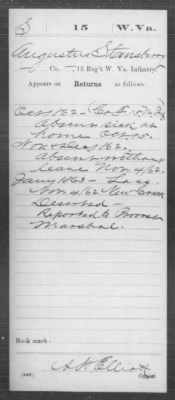 S 15 W. Va.
Augustus Stansbury
Co. , 15 Reg't W. Va. Infantry
Appears on Returns as follows:
Oct/62
Absent sick at
home Oct.
Nov & Dec/62.
Absent without
leave Nov. 4/62.
Jany 1863 — Loss
Nov. 4/62 New Creek
Deserted —
Reported to Provost
Marshal.
Book mark:
A. H. Elliott
(546) Copyist.